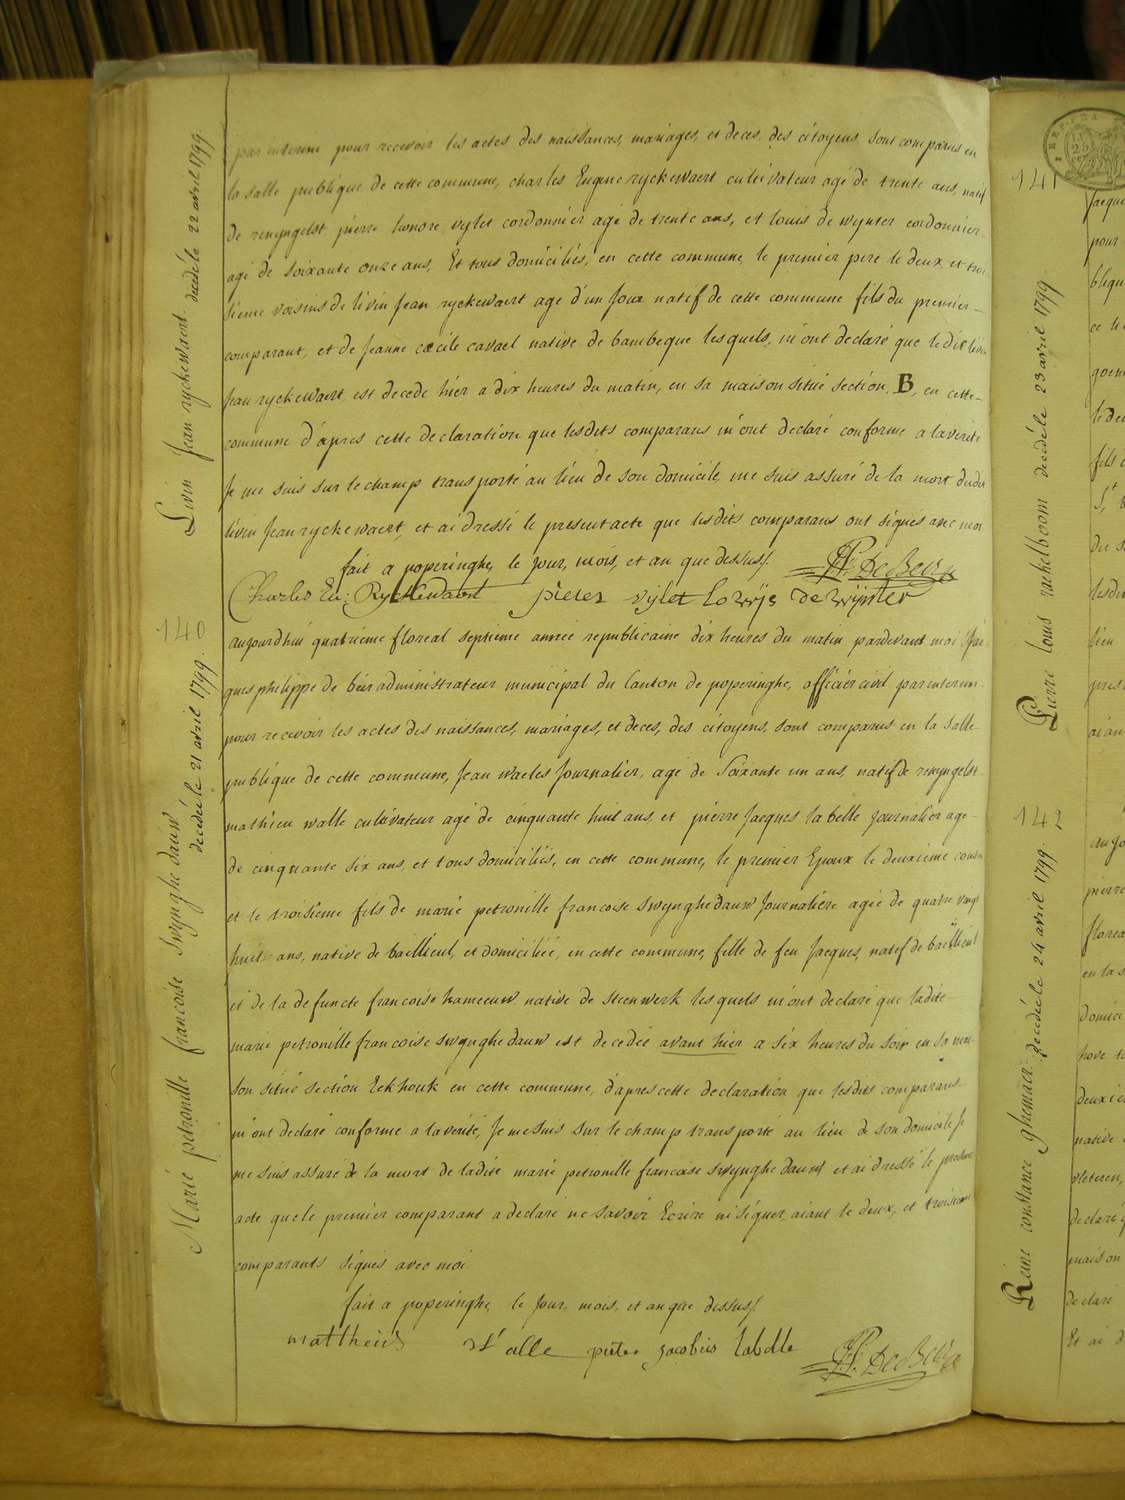 par interim pour recevoir les actes des naissances, mariages, et deces, des citoyens sont comparus en
la salle publique de cette commune, charles Eugene ryckewaert cultivateur agé de trente ans, natif
de renyngelst pierre honore vylet cordonnier agé de trente ans, et louis de wynter cordonnier
agé de soixante onze ans, Et tous domiciliés, en cette commune le premier pere le deux et troi
sieme voisins de livin Jean ryckewaert agé d'un Jour natif de cette commune fils du premier
comparant, et de Jeanne cecile cavael native de bambeque lesquels, m'ont declaré que ledit livin
Jean ryckewaert est decede hier a dix heures du matin, en sa maison situé section B, en cette
commune d'apres cette declaration que lesdits comparans m'ont declaré conforme a la verité
Je me suis sur le champ transporté au lieu de son domicile, me suis assuré de la mort dudit
livin Jean ryckewaert, et ai dressé le present acte que lesdits comparans ont signés avec moi
fait a poperinghe, le jour, mois, et an que dessus/.
Charles Eu: Ryckewaert pieter vylet Lowijs de wijnter
140
aujourdhui quatrieme floreal septieme année republicaine dix heures du matin pardevant moi Jac
ques philippe de beir administrateur municipal du Canton de poperinghe, officier civil par interim
pour recevoir les actes des naissances, mariages, et deces, des citoyens, sont comparus en la salle
publique de cette commune, Jean waeles Journalier, agé de Soixante un ans, natif de renyngelst
mathieu walle cultivateur agé de cinquante huit ans, et pierre Jacques labelle Journalier agé
de cinquante six ans, et tous domiciliés, en cette commune, le premier Epoux le deuxieme cousin
et le troisième fils de marie petronille francoise swynghedauw Journalière agée de quatre vingt
huit ans, native de bailleul, et domiciliée, en cette commune, fille de feu Jacques, natif de bailleul
et de la defuncte francoise hameeuw native de steenwerk lesquels m'ont declaré que ladite
marie petronille francoise swynghedauw est decedée avant hier a six heures du soir en sa mai
son situé section Eekhouk en cette commune, d'apres cette declaration que lesdits comparans
m'ont declaré conforme a la verité, Je me suis sur le champ transporté au lieu de son domicile Je
me suis assuré de la mort de ladite marie petronille francoise swynghedauw et ai dressé le present
acte que le premier comparant a declaré ne savoir Ecrire ni signer, aiant le deux, et troisieme
comparants signés avec moi
fait a poperinghe, le Jour, mois, et an que dessus/.
mattheus Walle pieter jacobus labelle
Livin Jean ryckewaert decedé le 22 avril 1799.
Marie petronille francoise Swynghedauw
decedée le 21 avril 1799.
141
Pierre louis rachelboom decedé le 23 avril 1799
142
Reine constance ghemier decedée le 24 avril 1799.